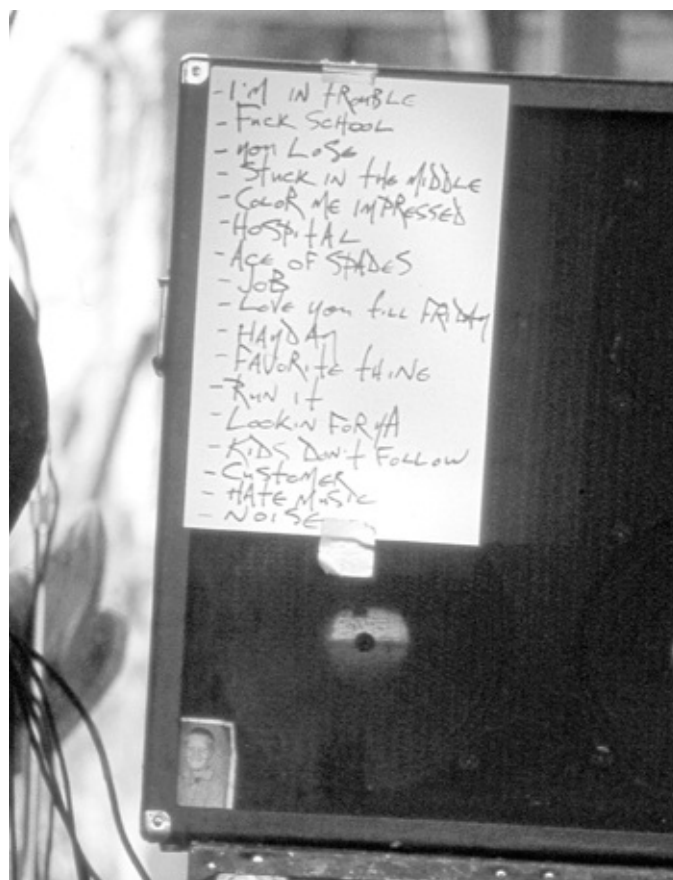 - I'M IN tROUBLE
- FUCK SCHOOL
- YOU LOSE
- STUCK IN tHE MIDDLE
- COLOR ME IMPRESSED
- HOSPItAL
- ACE OF SPADES
- JOB
- LOVE YOU tiLL FRIDAY
- HAYDAY
- FAVORItE tHING
- RUN It
- LOOKIN FOR YA
- KIDS DON't FOLLOW
- CUStOMER
- HAtE MUSIC
- NOISE